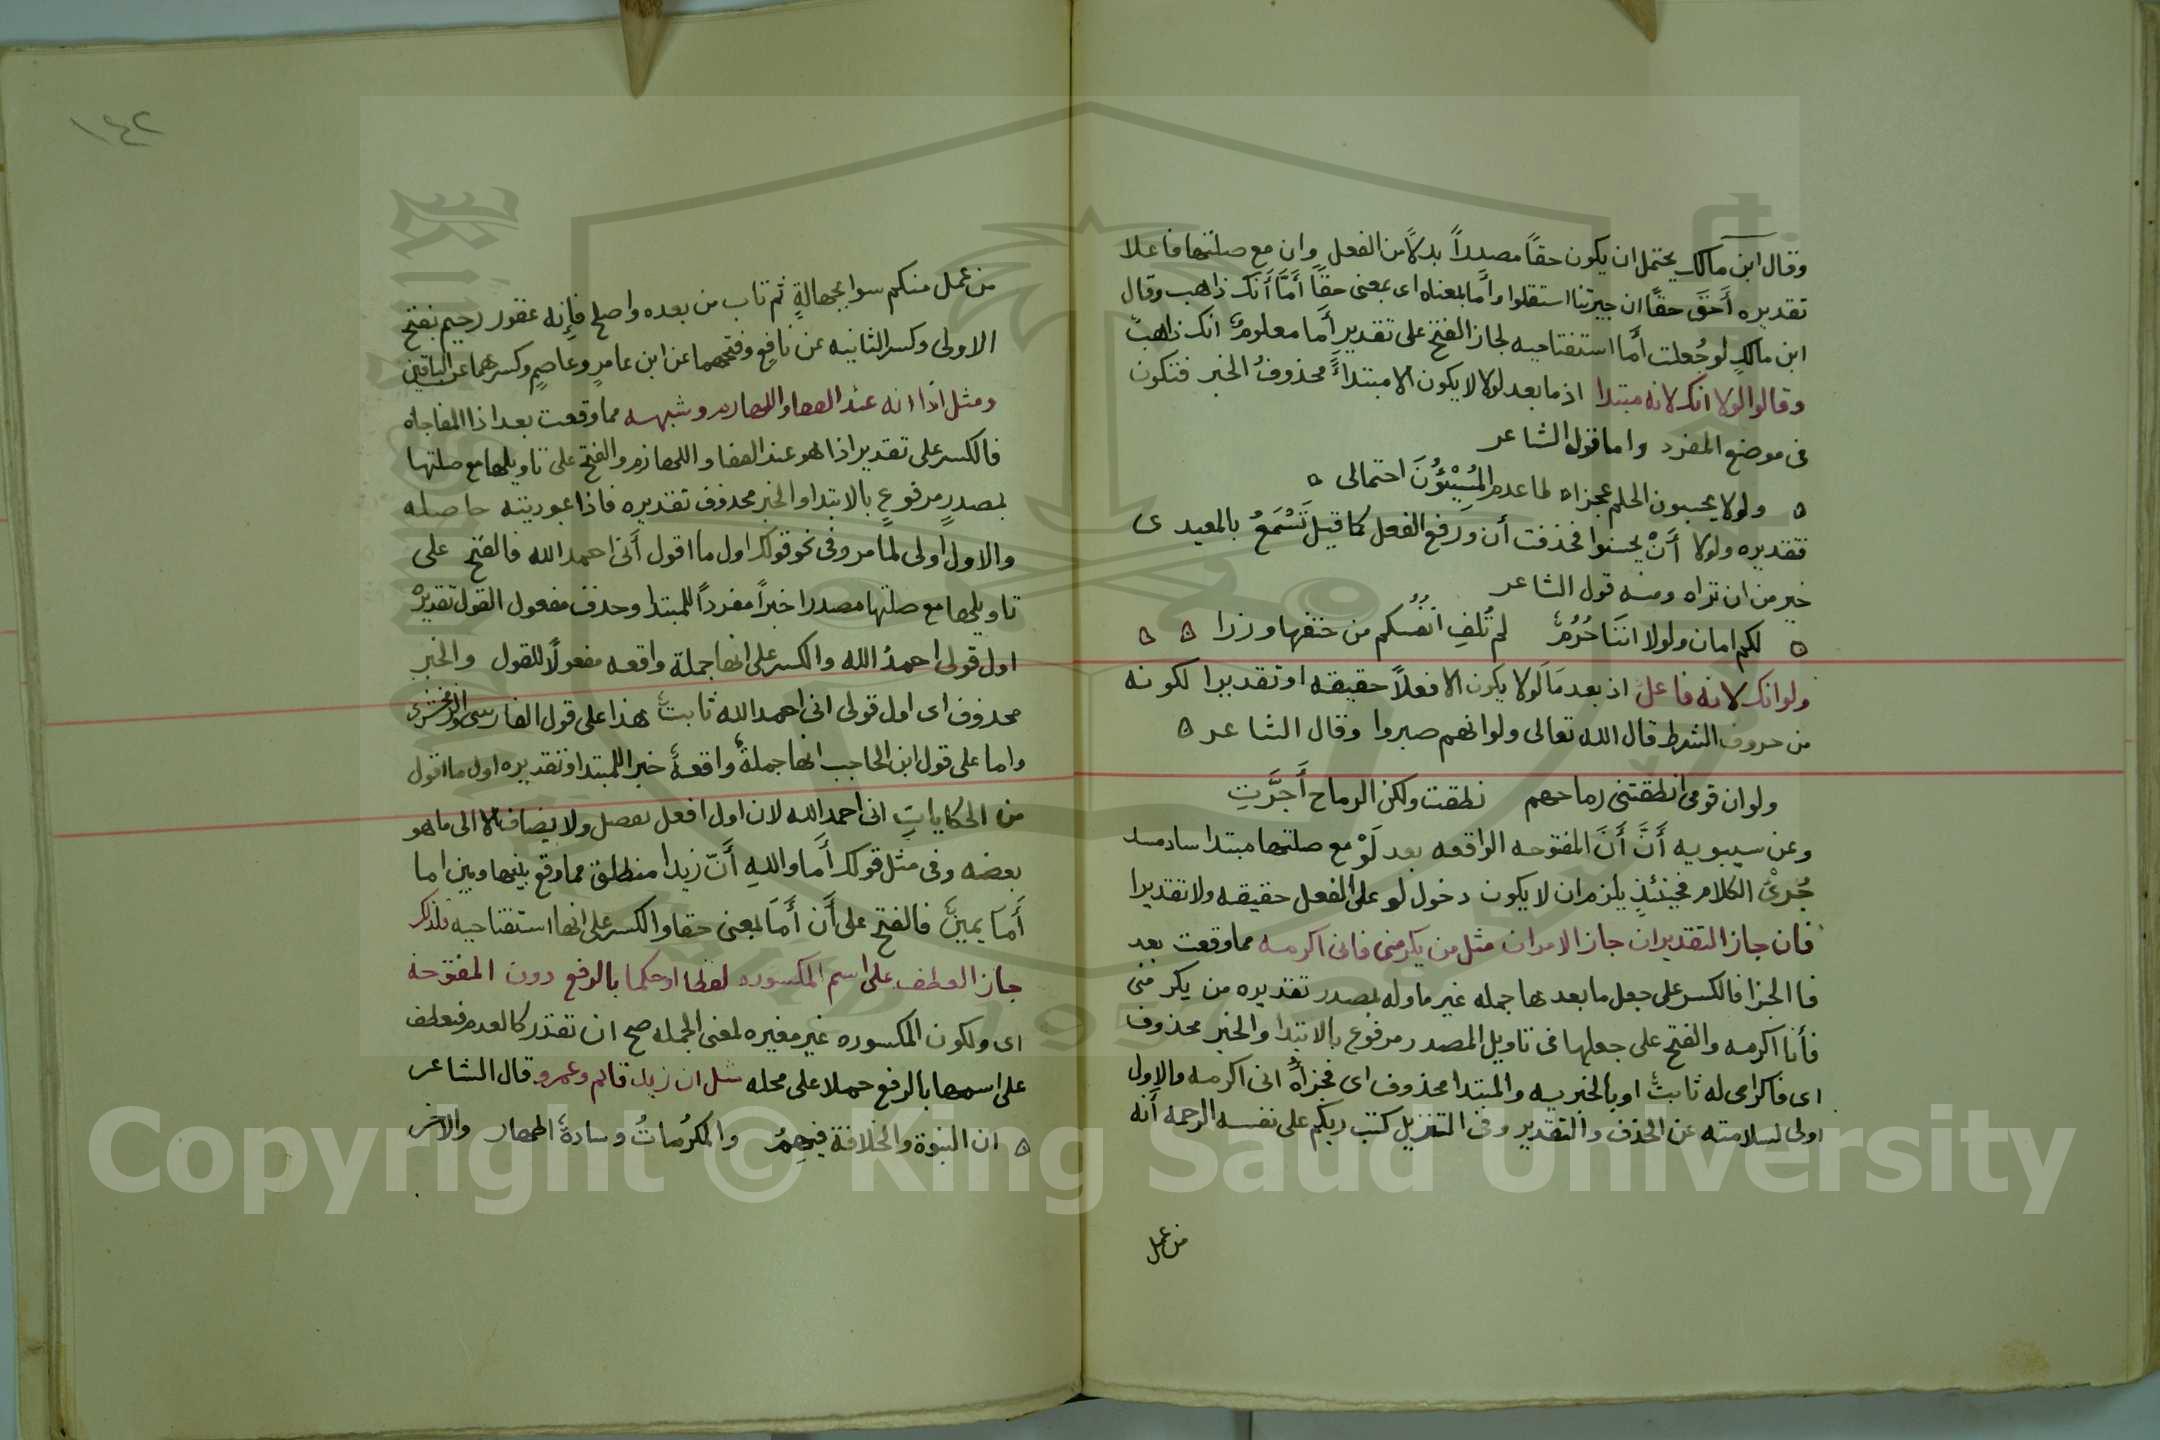 وقال ابن مالك يحتمل ان يكون حقًا مصدراً بدلاً من الفعل وان مع صلتها فاعلا
تقديره أَحَقَ حقًا ان جيرتنا استقلوا وأَما بمعناه اى بمعنى حقًا أَمَا أَنك ذاهب وقال
ابن مالكٍ لو جُعلت أَما استفتاحيه لجاز الفتح على تقدير أَما معلومٌ انك ذاهبٌ
وقالوا لولا انك لانه مبتدا اذ ما بعد لولا لا يكون الا مبتداءً محذوفُ الخبر فتكون
فى موضع المفرد واما قول الشاعر
ولولا يحسبون الحلم عجزا لما عدم المُسِيْئُونَ احتمالى
فتقديره ولولا أَنْ يحسبوا فحذفت أن ورفع الفعل كما قيل تَسْمَعُ بالمعيدى
خير من ان تراه ومنه قول الشاعر
لكم امان ولولا اننَا حُرُمٌ لم تُلفِ انفُسُكم من حتفها وزرا
ولو انك لانه فاعلٌ اذ بعد مَا لَولا يكون الا فعلاً حقيقه او تقديرا لكونه
من حروف الشرط قال الله تعالى ولو انهم صبروا وقال الشاعر
ولو ان قومى انطقتنى رماحهم نطقت ولكن الرماح أَجَرَّتِ
وعن سيبويه أَنَّ أَنَ المفتوحه الواقعه بعد لَوْ مع صلتها مبتدا ساد مسد
جُزئ الكلام فحينئذٍ يلزم ان لا يكون دخول لو على الفعل حقيقه ولا تقديرا
فان جاز التقديران جاز الامران مثل من يكرمنى فانى اكرمه مما وقعت بعد
فا الجزا فالكسر على جعل ما بعدها جمله غير ماوله بمصدر تقديره من يكرمنى
فأنا اكرمه والفتح على جعلها فى تاويل المصدر مرفوع بالابتدا والخبر محذوف
اى فاكرامى له ثابتٌ او بالخبريه والمبتدا محذوف اى فجزاهُ انى اكرمه والاول
اولى لسلامته عن الحذف والتقدير وفى التنزيل كتب ربكم على نفسه الرحمه أَنه
من عمل
١٤٢
من عمل منكم سوا بجهالةٍ ثم تاب من بعده واصلح فإِنه غفور رحيم بفتح
الاولى وكسر الثانيه عن نافعٍ وفتحهما عن ابن عامرٍ وعاصمٍ وكسرهما عن الباقين
ومثل اذا انه عند القفا واللهازم وشبهه مما وقعت بعد اذا المفاجاه
فالكسر على تقدير اذا هو عند القفا واللهازم والفتح على تاويلها مع صلتها
بمصدرٍ مرفوعٍ بالابتدا والخبر محذوف تقديره فاذا عبوديته حاصله
والاول اولى لما مر وفى نحو قولك اول ما اقول أَنى احمد الله فالفتح على
تاويلها مع صلتها مصدرا خبراً مفرداً للمبتدا وحذف مفعول القول تقديره
اول قولى احمدُ الله والكسر على انها جملة واقعه مفعولًا للقول والخبر
محذوف اى اول قولى انى احمد الله ثابتٌ هذا على قول الفارسى والزمخشرى
واما على قول ابن الحاجب انها جملةٌ واقعةٌ خبرا للمبتدا وتقديره اول ما اقول
من الحكاياتِ انى احمد الله لان اول افعل تفصل ولا يضاف الا الى ما هو
بعضه وفى مثل قولك أَما واللهِ أَنّ زيدا منطلق مما وقع بينها وبين اما
أَمَا يمينٌ فالفتح على أَن أَمَا بمعنى حقا والكسر على انها استفتاحيه فلذلك
جاز العطف على اسم المكسوره لفظا او حكما بالرفع دون المفتوحة
اى ولكون المكسوره غير مغيره لمعنى الجمله صح ان تقدر كالعدم فيعطف
على اسمها بالرفع حملا على محله مثل ان زيدا قائم وعمرو قال الشاعر
ان النبوة والخلافة فيهِمُ والمكرُماتُ وسادةٌ اطهار والاخر
Copyright © King Saud University